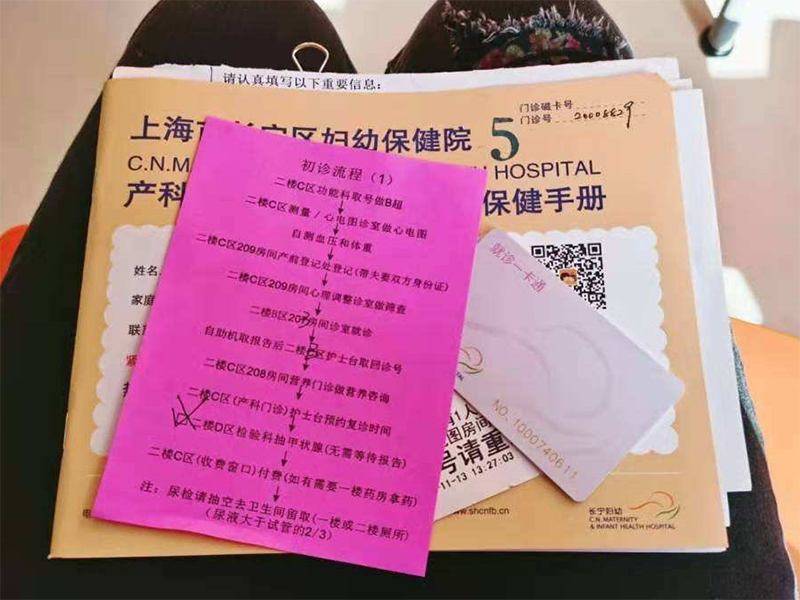 请认真填写以下重要信息:
门诊磁卡号
门诊号 20008829
5
上海
区妇幼保健院
C.N.M
HOSPITAL
产科
保健手册
初诊流程（1）
二楼C区功能科取号做B超
二楼C区测量/心电图诊室做心电图
自测血压和体重
二楼C区209房间产前登记处登记(带夫妻双方身份证)
二楼C区209房间心理调整诊室做筛查
二楼B区203房间诊室就诊
自助机取报告后二楼B区护士台取回诊号
二楼C区208房间营养门诊做营养咨询
二楼C区(产科门诊)护士台预约复诊时间
二楼D区检验科抽甲状腺(无需等待报告)
二楼C区(收费窗口)付费(如有需要一楼药房拿药)
注: 尿检请抽空去卫生间留取(一楼或二楼厕所)
(尿液大于试管的2/3)
姓名
家庭
联
紧
就诊一卡通
NO.1000740611
1人
图房间
号请重
11-13 13:27:03
www.shcnfb.cn
长宁妇幼
C.N. MATERNITY
& INFANT HEALTH HOSPITAL